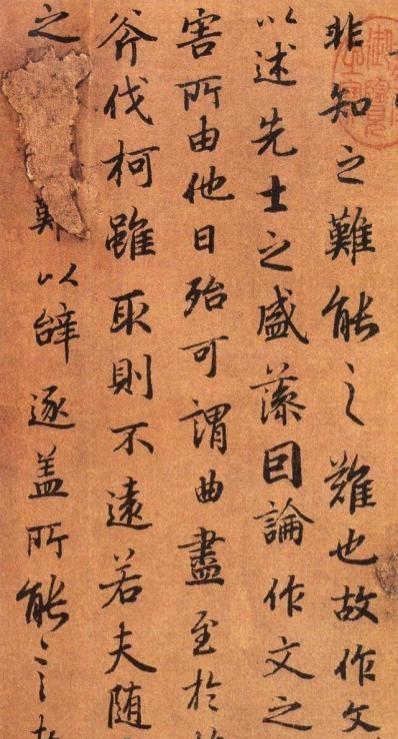 非知之難能之難也故作文
以述先士之盛藻因論作文之
害所由他日殆可謂曲盡至於
斧伐柯雖取則不遠若夫随
之難以辭逐盖所能言